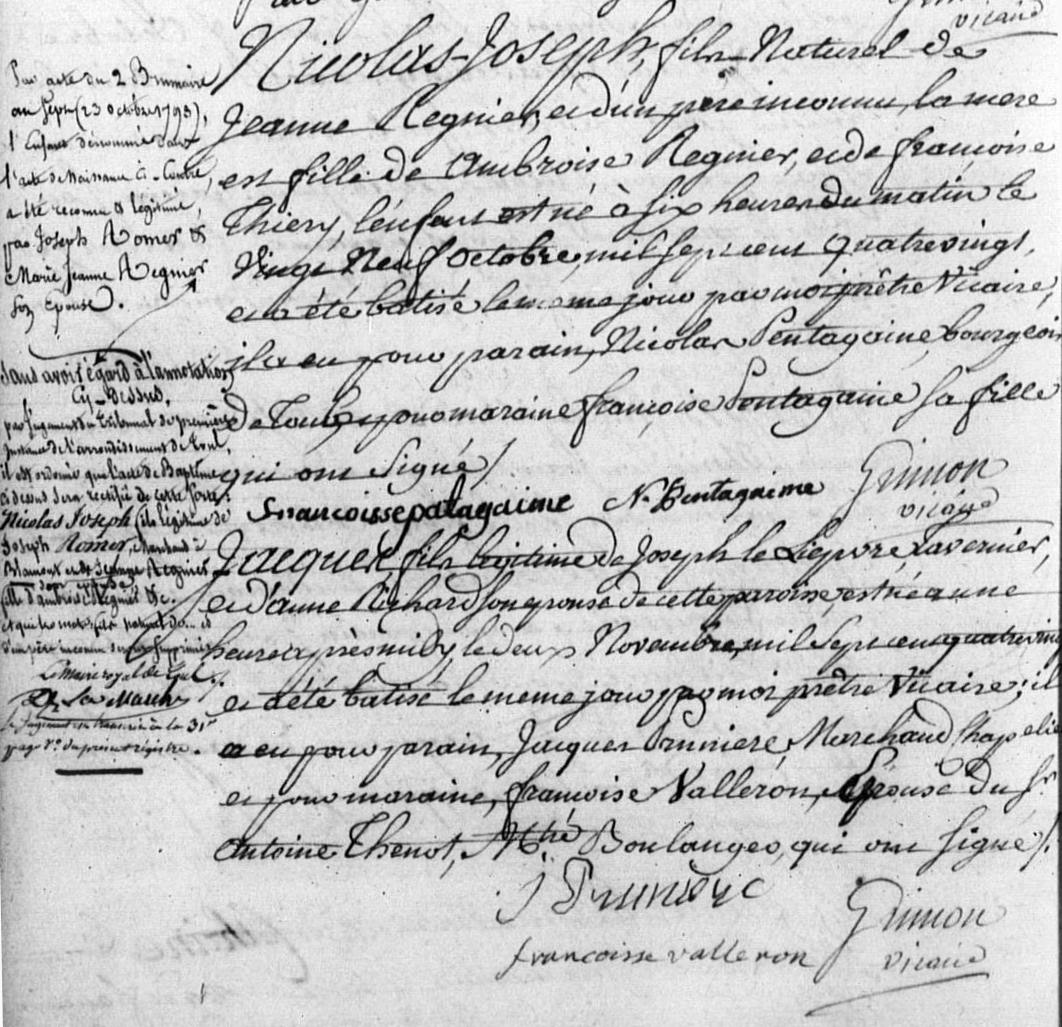 vicaire
Nicolas-Joseph, fils Naturel de
Jeanne Regnier, et d'un pere inconnu, la mere
est fille de Ambroise Regnier, et de françoise
Thiery, l'enfant est né à six heures du matin le
Vingt Neuf Octobre, mil sept cent quatrevingt,
et a été batisé le meme jour par moi prêtre Vicaire,
il a eu pour parain, Nicolas Pentagaine, bourgeois
de Toul, et pour maraine françoise Pentagaine sa fille
qui ont Signé /
francoisse patagaime N. Pentagaime Grimon
vicaire
Jacques, fils legitime de Joseph le Liepvre, tavernier,
et d'anne Richard son epouse de cette paroisse, est né a une
heure après midy, le deux Novembre, mil sept cent quatrevingt
et a été batisé le meme jour par moi prêtre Vicaire; il
a eu pour parain, Jacques Pruniere, Marchand Chapelier
et pour maraine, francoise Valleron, Epouse du Sr
Antoine Thenot, Mtre Boulanger, qui ont signé /.
J Pruniere Grimon
francoisse valleron vicaire
Par acte du 2 Brumaire
an Sept (23 octobre 1798),
l'Enfant dénommé dans
l'acte de Naissance Ci-Contre,
a été reconnu & légitimé,
par Joseph Romer &
Marie Jeanne Regnier
son Epouse.
Sans avoir égard à l'annotation
Cy-Dessus,
par Jugement du Tribunal de première
Instance de l'arrondissement de Toul,
il est ordonné que l'acte de Baptême
ci dessus sera rectifié de cette sorte:
Nicolas Joseph fils légitime de
Joseph Romer, Marchand à
Blamont et de Jeanne Regnier
son épouse
fille d'ambroise Regnier &c.
et que les mots fils naturel de
d'un père inconnu seront supprimés
Le Maire royal de Toul
Le Jugement est transcrit à la 31e
page Vo du présent régistre.